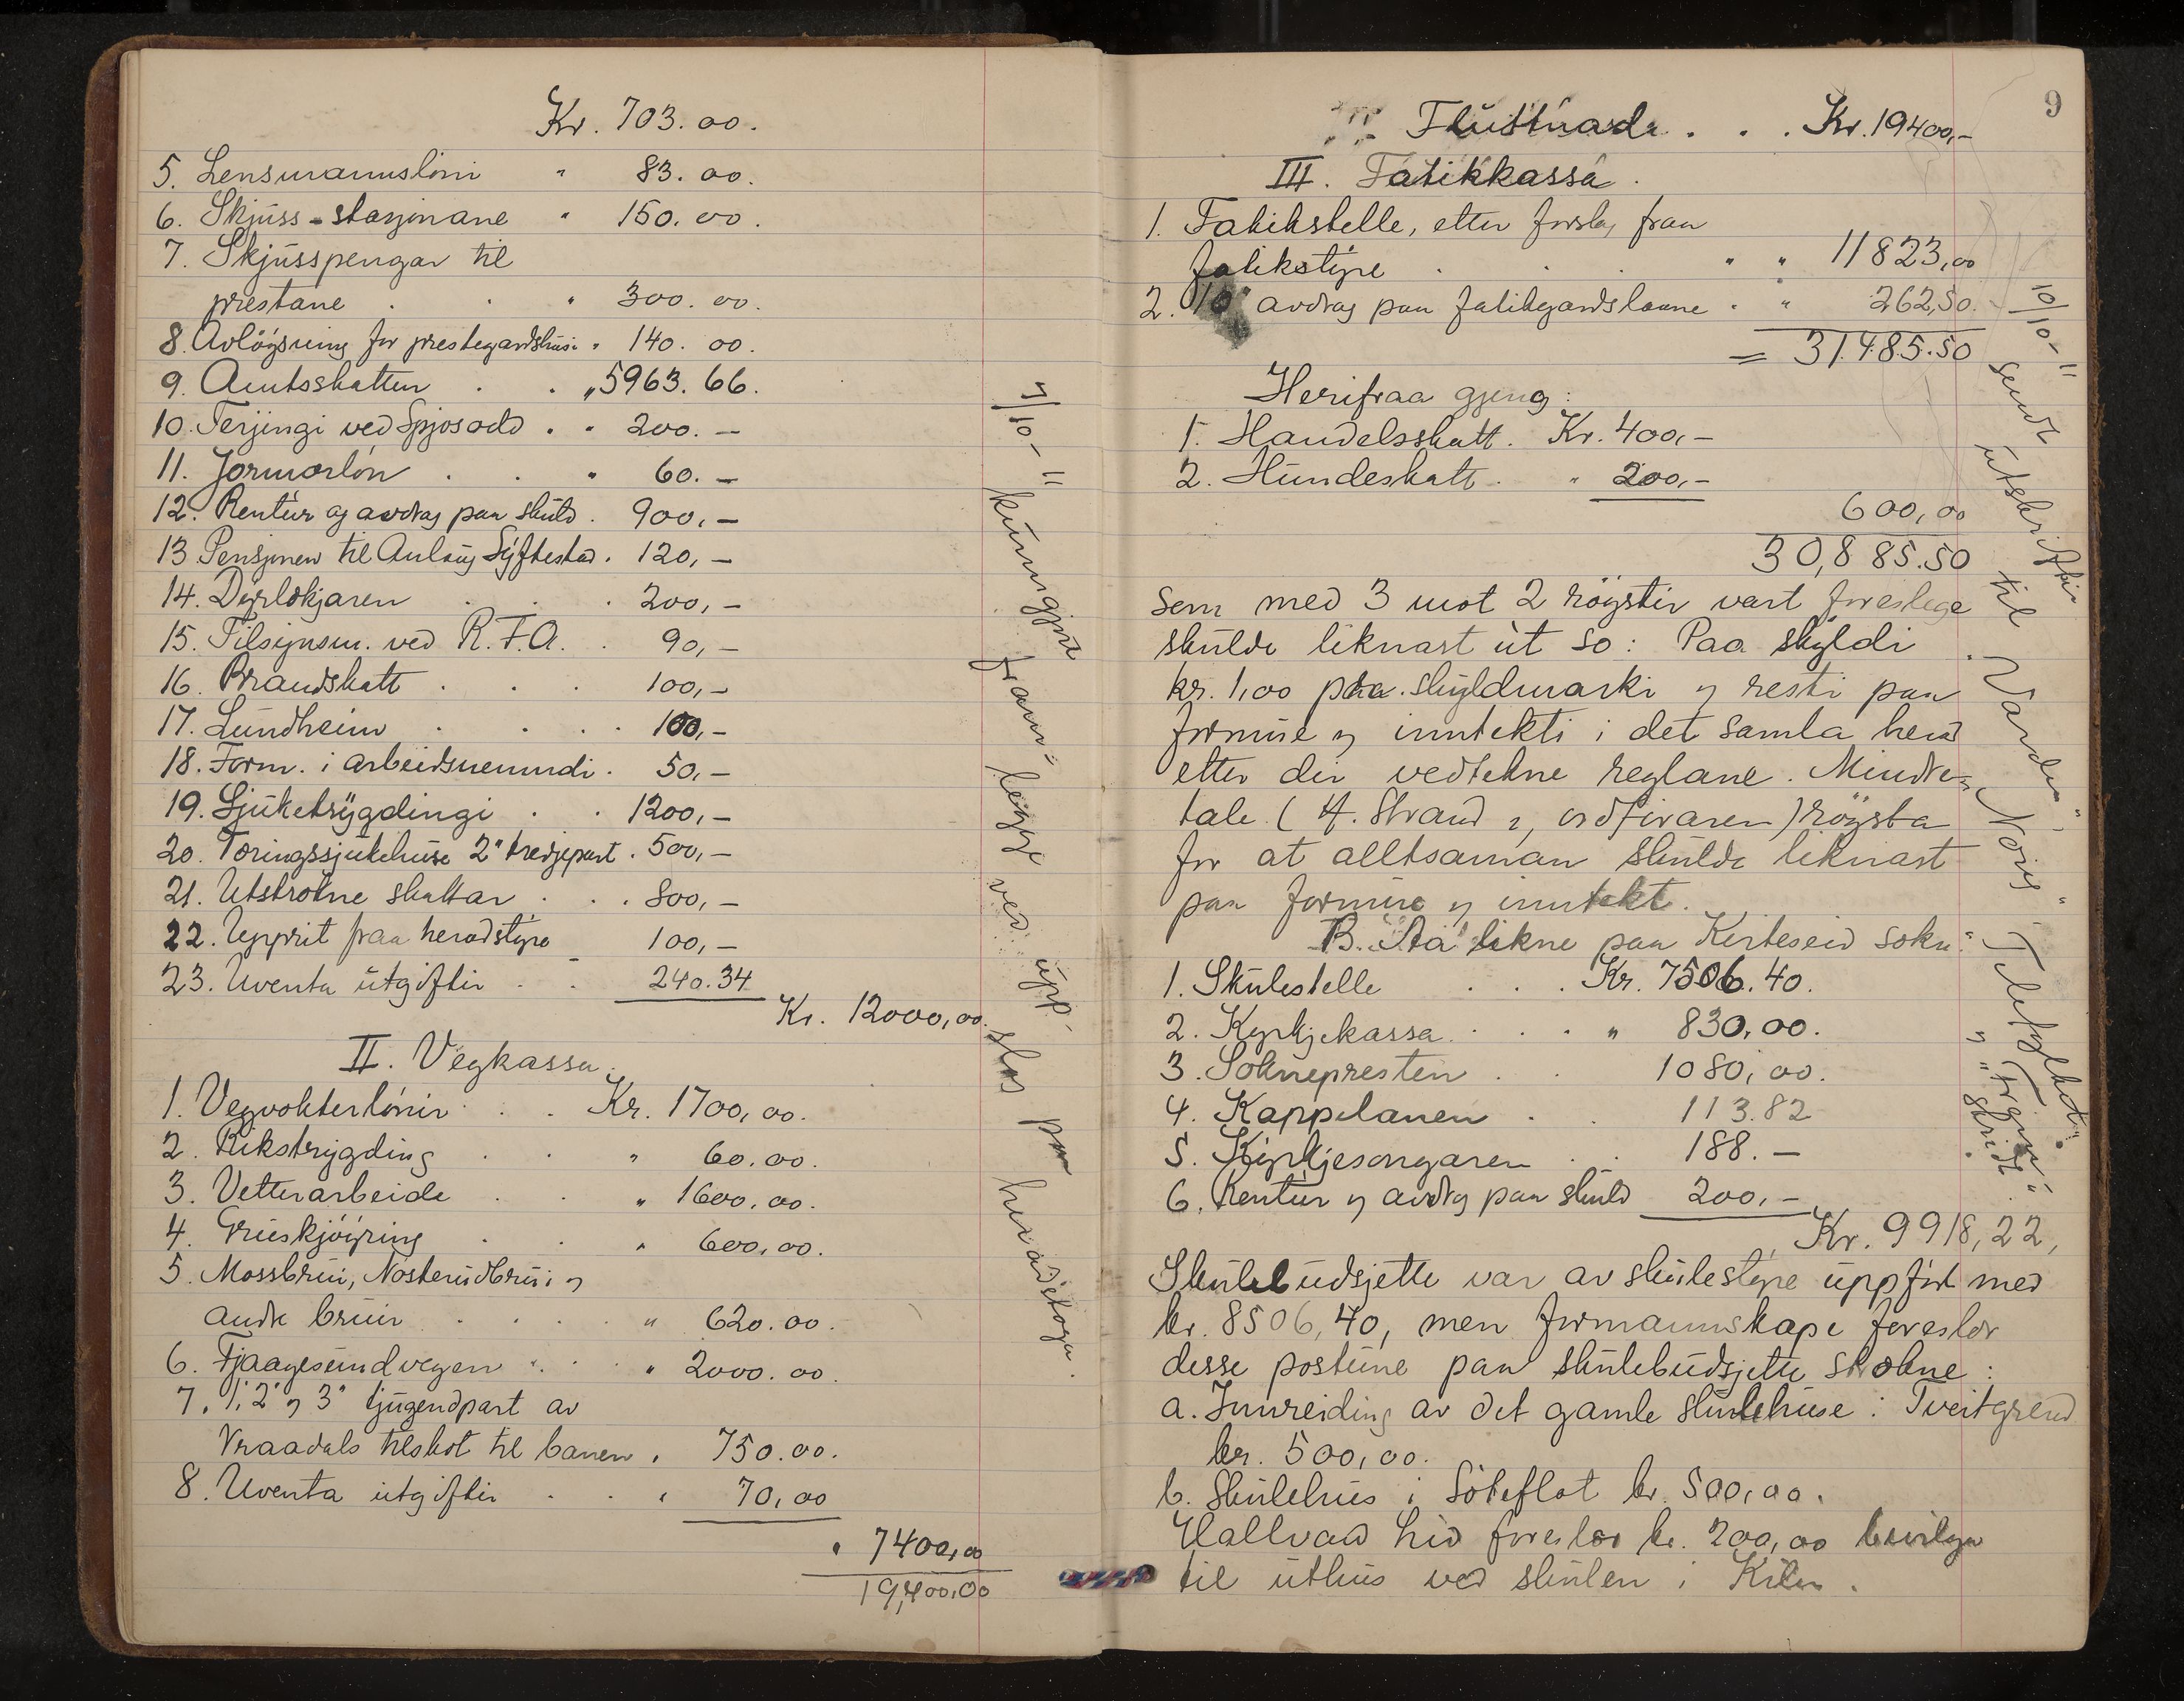 Kr. 703.00.
5. Lensmannsløni " 83.00.
6. Skjuss-stasjonane " 150.00.
7. Skjusspengar til
prestane . . " 300.00.
8. Avløysning for prestegardshusi " 140.00.
9. Amtsskatten . . " 5963.66.
10. Ferjingi ved Spjosodd . " 200.–
11. Jormorløn . . " 60.–
12. Rentur og avdrag paa skuld . 900,–
13. Pensjonen til Aulaug Syftestad . 120,–
14. Dyrlækjaren . . . 200,–
15. Tilsynsm. ved R.F.A. . 90,–
16. Brandskatt . . . 100,–
17. Lundheim . . . 100,–
18. Form. i arbeidsnemndi . 50,–
19. Sjuketrygdingi . . 1200,–
20. Tæringssjukehuse 2" tredjepart . 500,–
21. Utstrokne skattar . . . 800,–
22. Upprit fraa heradstyre 100,–
23. Uventa utgiftir . . 240.34
Kr. 12000,00.
II. Vegkassa.
1. Vegvokterlønir . . Kr. 1700,00.
2. Rikstrygding . . " 60.00.
3. Vetterarbeide . . " 1600.00.
4. Gruskjøyring . . " 600,00.
5. Mossbrui, Nosterudbrui og
andre bruir . . . . " 620.00.
6. Fjaagesundvegen . . " 2000.00.
7. 1, 2" og 3" tjugendpart av
Vraadals tilskot til banen . 750.00.
8. Uventa utgiftir . . " 70,00
" 7400,00
19,400,00
7/10-11 kunngjort framlegge ved uppslag paa heradstoga.
9
Flutnad . . . Kr. 19400,–
III. Fatikkassa.
1. Fatikstelle, etter forslag fraa
fatikstyre . . . " " 11823,00
2. 10" avdrag paa fatikgardslaane . " 262,50.
= 31485.50
Herifraa gjeng:
1. Handelsskatt. Kr. 400,–
2. Hundeskatt . " 200,–
600,00
30,885.50
som med 3 mot 2 røystir vart foreslege
skulde liknast ut so: Paa skyldi
kr. 1,00 paa skyldmarki og resti paa
formue og inntekti i det samla herad
etter dei vedtekne reglane. Mindre-
tale (H. Strand og ordføraren) røysta
for at alltsaman skulde liknast
paa formue og inntekt.
B. Aa likne paa Kviteseid sokn:
1. Skulestelle . . . Kr. 7506.40.
2. Kyrkjekassa . . . " 830,00.
3. Soknepresten . . 1080,00.
4. Kappelanen . . 113.82
5. Kyrkjesongaren . . 188.–
6. Rentur og avdrag paa skuld 200,–
Kr. 9918,22,
Skulebudsjette var av skulestyre uppført med
kr. 8506,40, men formannskape foreslær
desse postane paa skulebudsjette strokne:
a. Innreiding av det gamle skulehuse i Tveitgrend
kr. 500,00.
b. Skulehus i Søteflot kr. 500,00.
Hallvard Lid foreslær kr. 200,00 bevilga
til uthus ved skulen i Kilen.
10/10-11 sendt utskriftir til "Varden", "Norig", "Telegbl."
og "Grenm."
skridt.